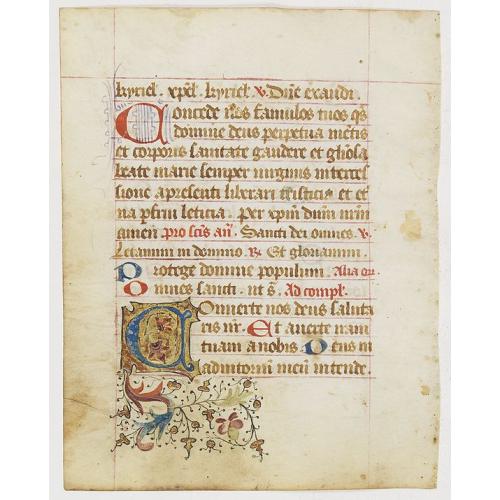 kyriel. xpel. kyriel. v. Dne exaudi.
Concede nos famulos tuos qs
domine deus perpetua metis
et corporis sanitate gaudere et gliosa
beate marie semper virginis interces
sione a presenti liberari tristicia et et
na pfrui leticia. Per xpm dnm nrm
amen pro scis añ. Sancti dei omnes. v.
Letamini in domino. R. Et gloriamini.
Protege domine populum. Alia or.
Omnes sancti. ut s. Ad compl.
Converte nos deus saluta
ris nr. Et averte iram
tuam a nobis. Deus in
adiutoriu meu intende.